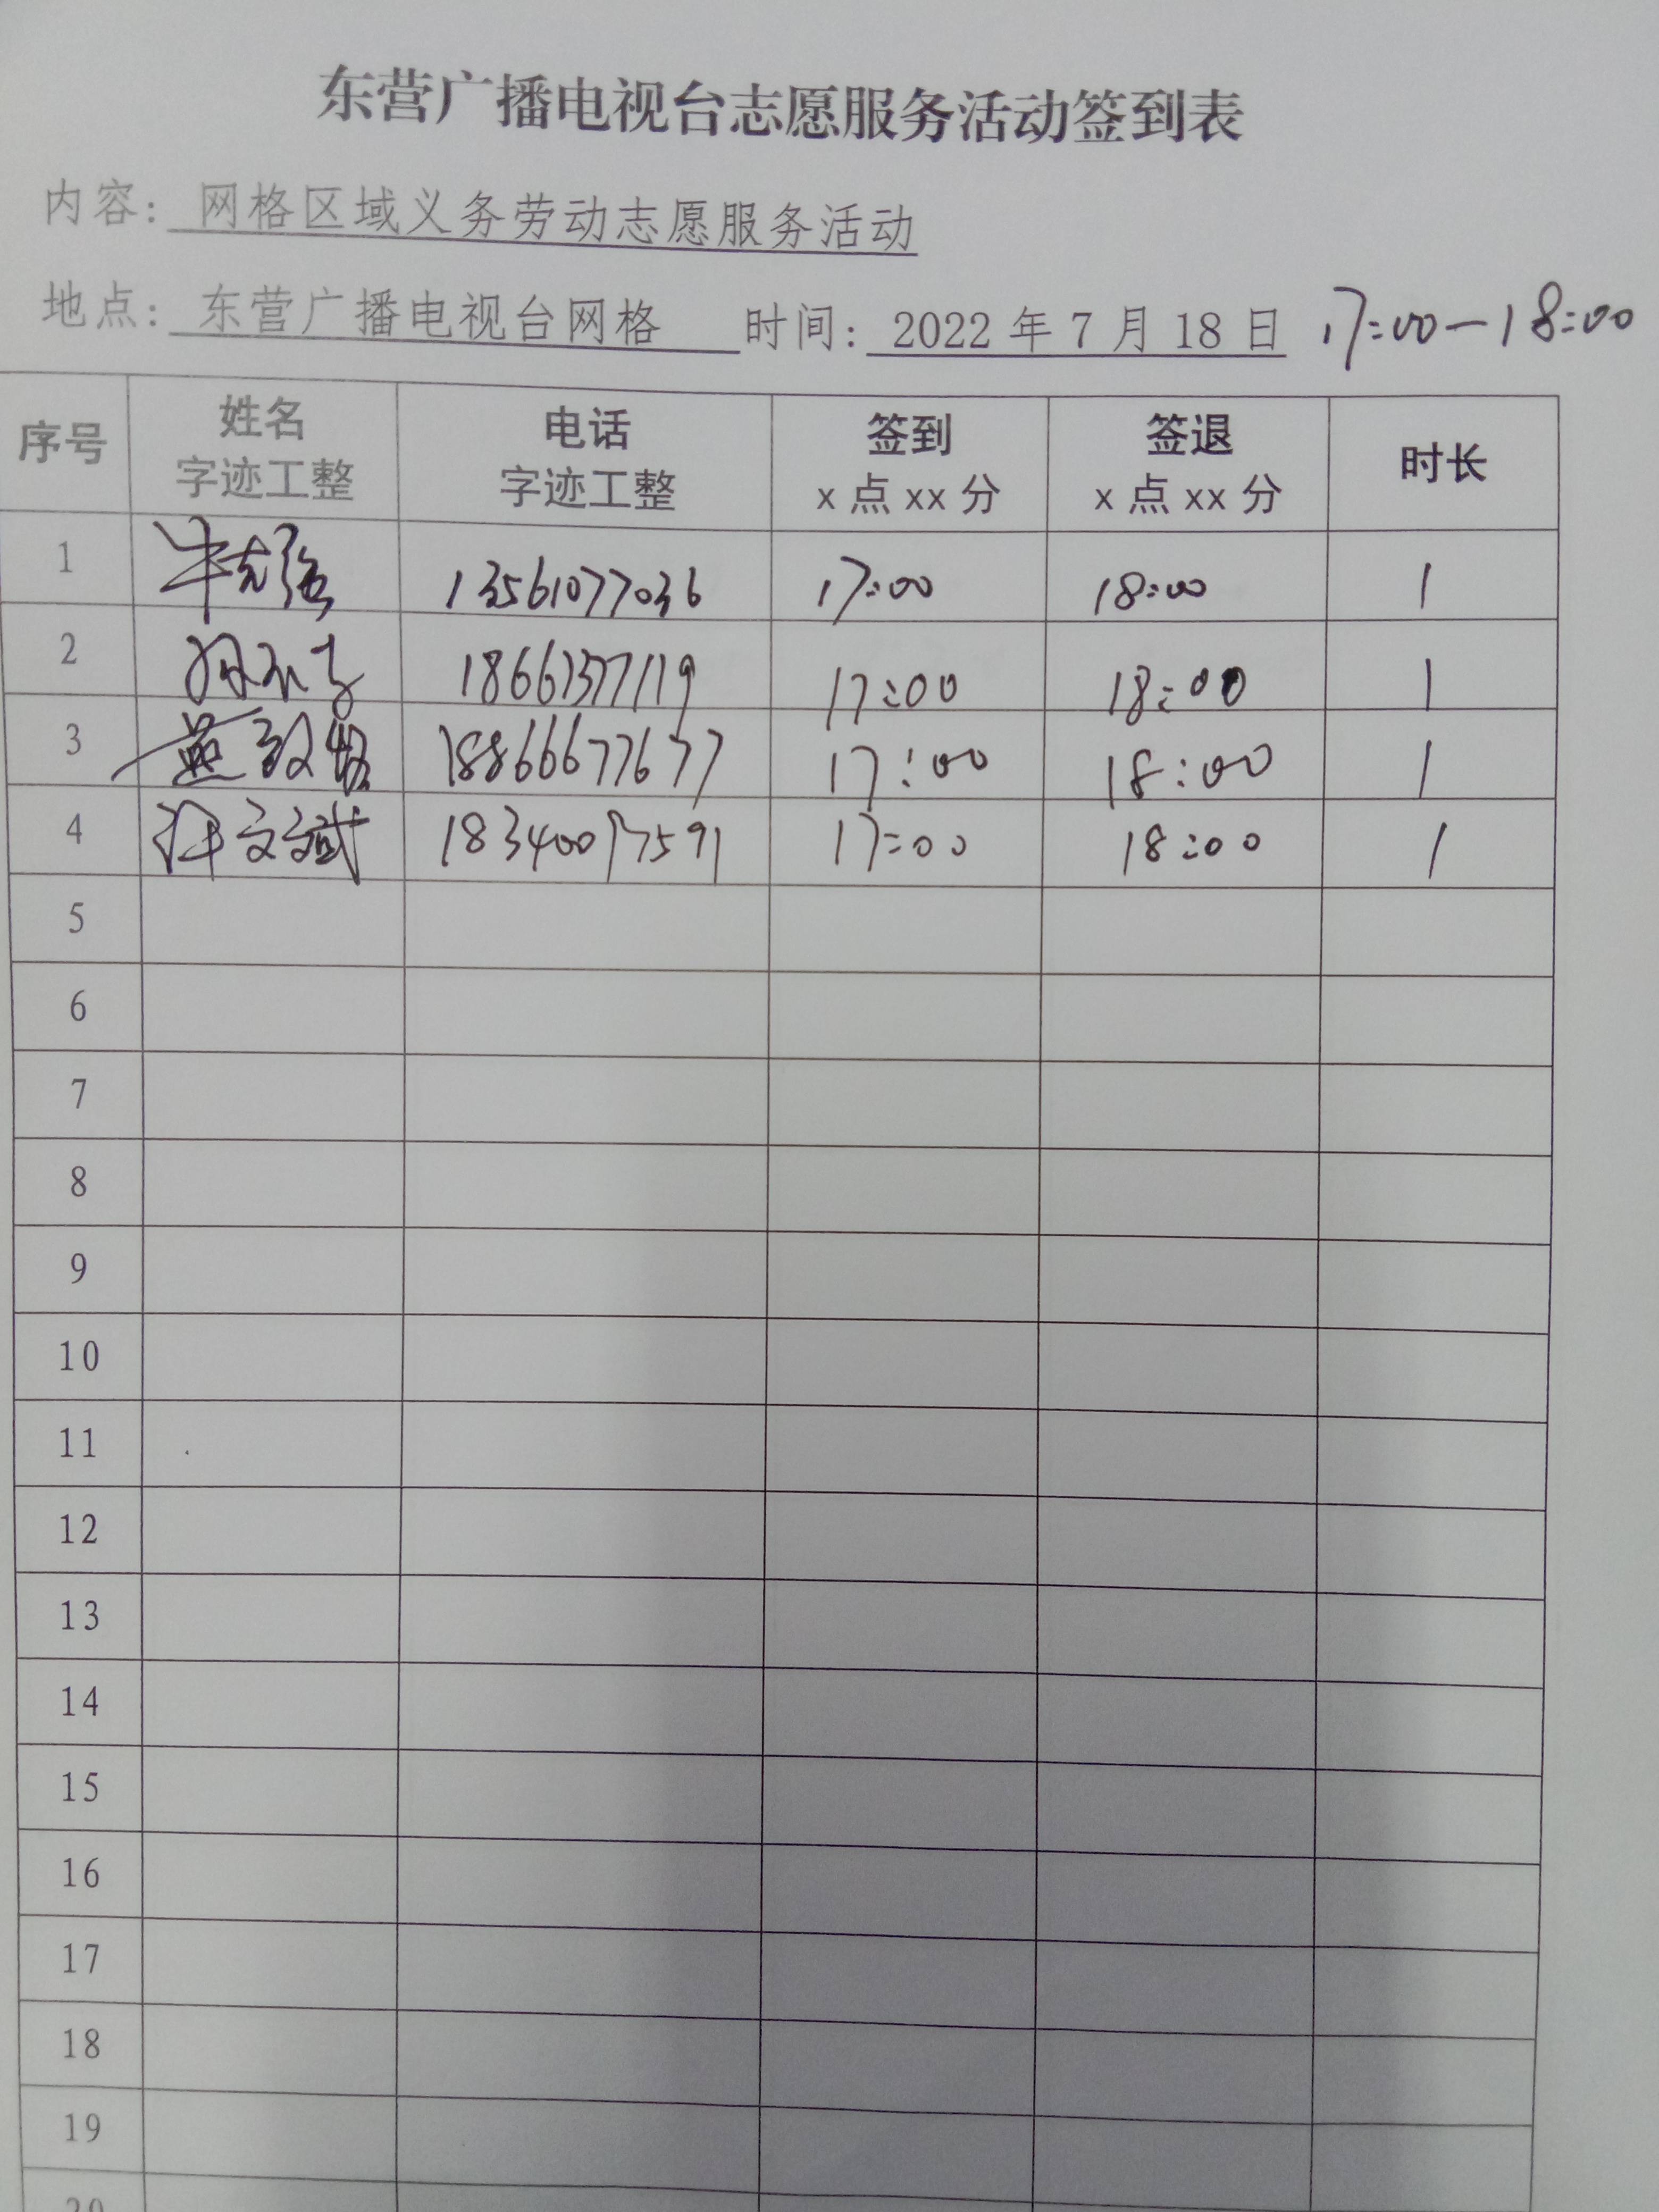 东营广播电视台志愿服务活动签到表
内容: 网格区域义务劳动志愿服务活动
地点: 东营广播电视台网格 时间: 2022年7月18日 17:00-18:00
序号 姓名 电话 签到 签退 时长
字迹工整 字迹工整 x点xx分 x点xx分
1 牛克强 13561077036 17:00 18:00 1
2 17:00 18:00 1
3 18866677677 17:00 18:00 1
4 文斌 18340097591 17:00 18:00 1
5
6
7
8
9
10
11
12
13
14
15
16
17
18
19
20